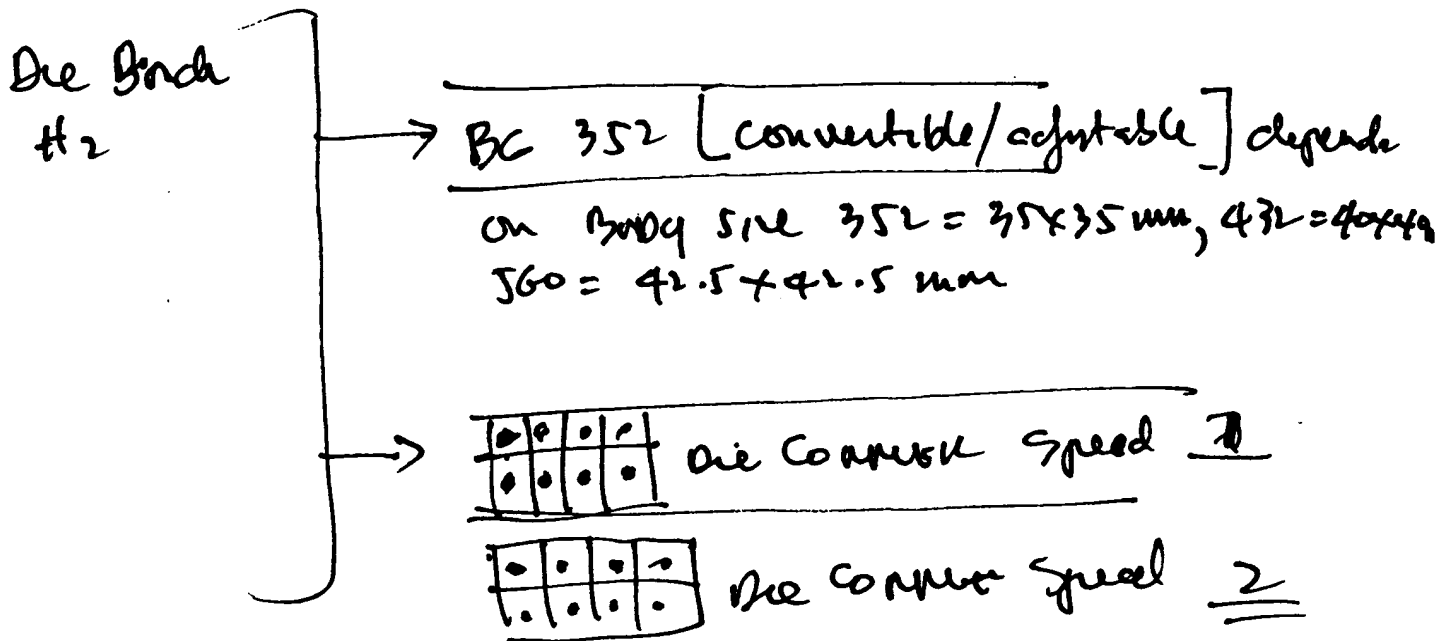 Die Bond
#2
BG 352 [convertible/adjustable] depends
on Body size 352 = 35x35 mm, 432 = 40x40
560 = 42.5 x 42.5 mm
Die Conveyor Speed 1
Die Conveyor Speed 2